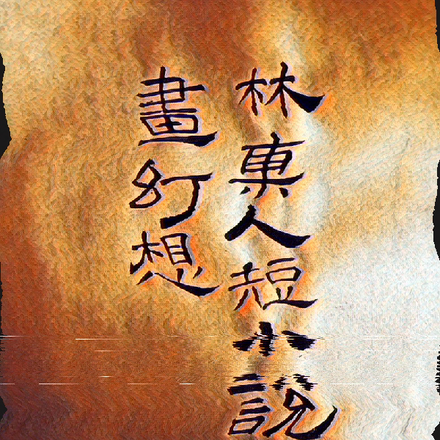 林東人短小說
畫幻想